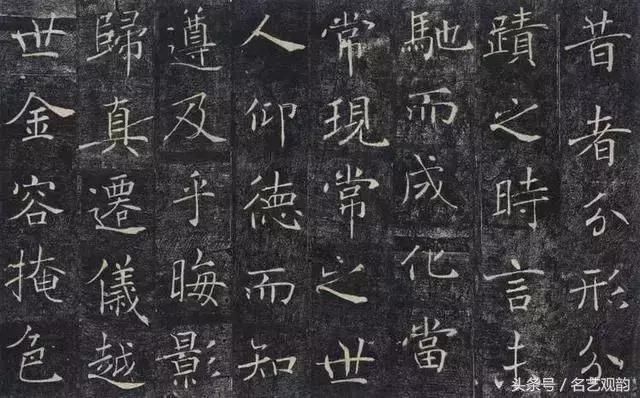 昔者分形分
蹟之時言未
馳而成化當
常現常之世
人仰德而知
遵及乎晦影
歸真遷儀越
世金容掩色
头条号/名艺观韵